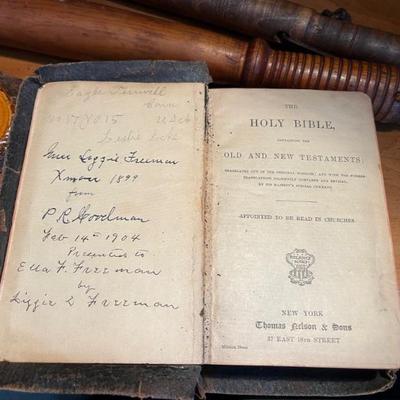 Born
Miss Liggie Freeman
Xmas 1899
from
P. R. Goodman
Feb 14th 1904
Presented to
Ella F. Freeman
by
Liggie L Freeman
THE
HOLY BIBLE,
CONTAINING THE
OLD AND NEW TESTAMENTS;
TRANSLATED OUT OF THE ORIGINAL TONGUES; AND WITH THE FORMER
TRANSLATIONS DILIGENTLY COMPARED AND REVISED,
BY HIS MAJESTY'S SPECIAL COMMAND.
APPOINTED TO BE READ IN CHURCHES.
NEW YORK
Thomas Nelson & Sons
37 EAST 18TH STREET
Minion 24mo